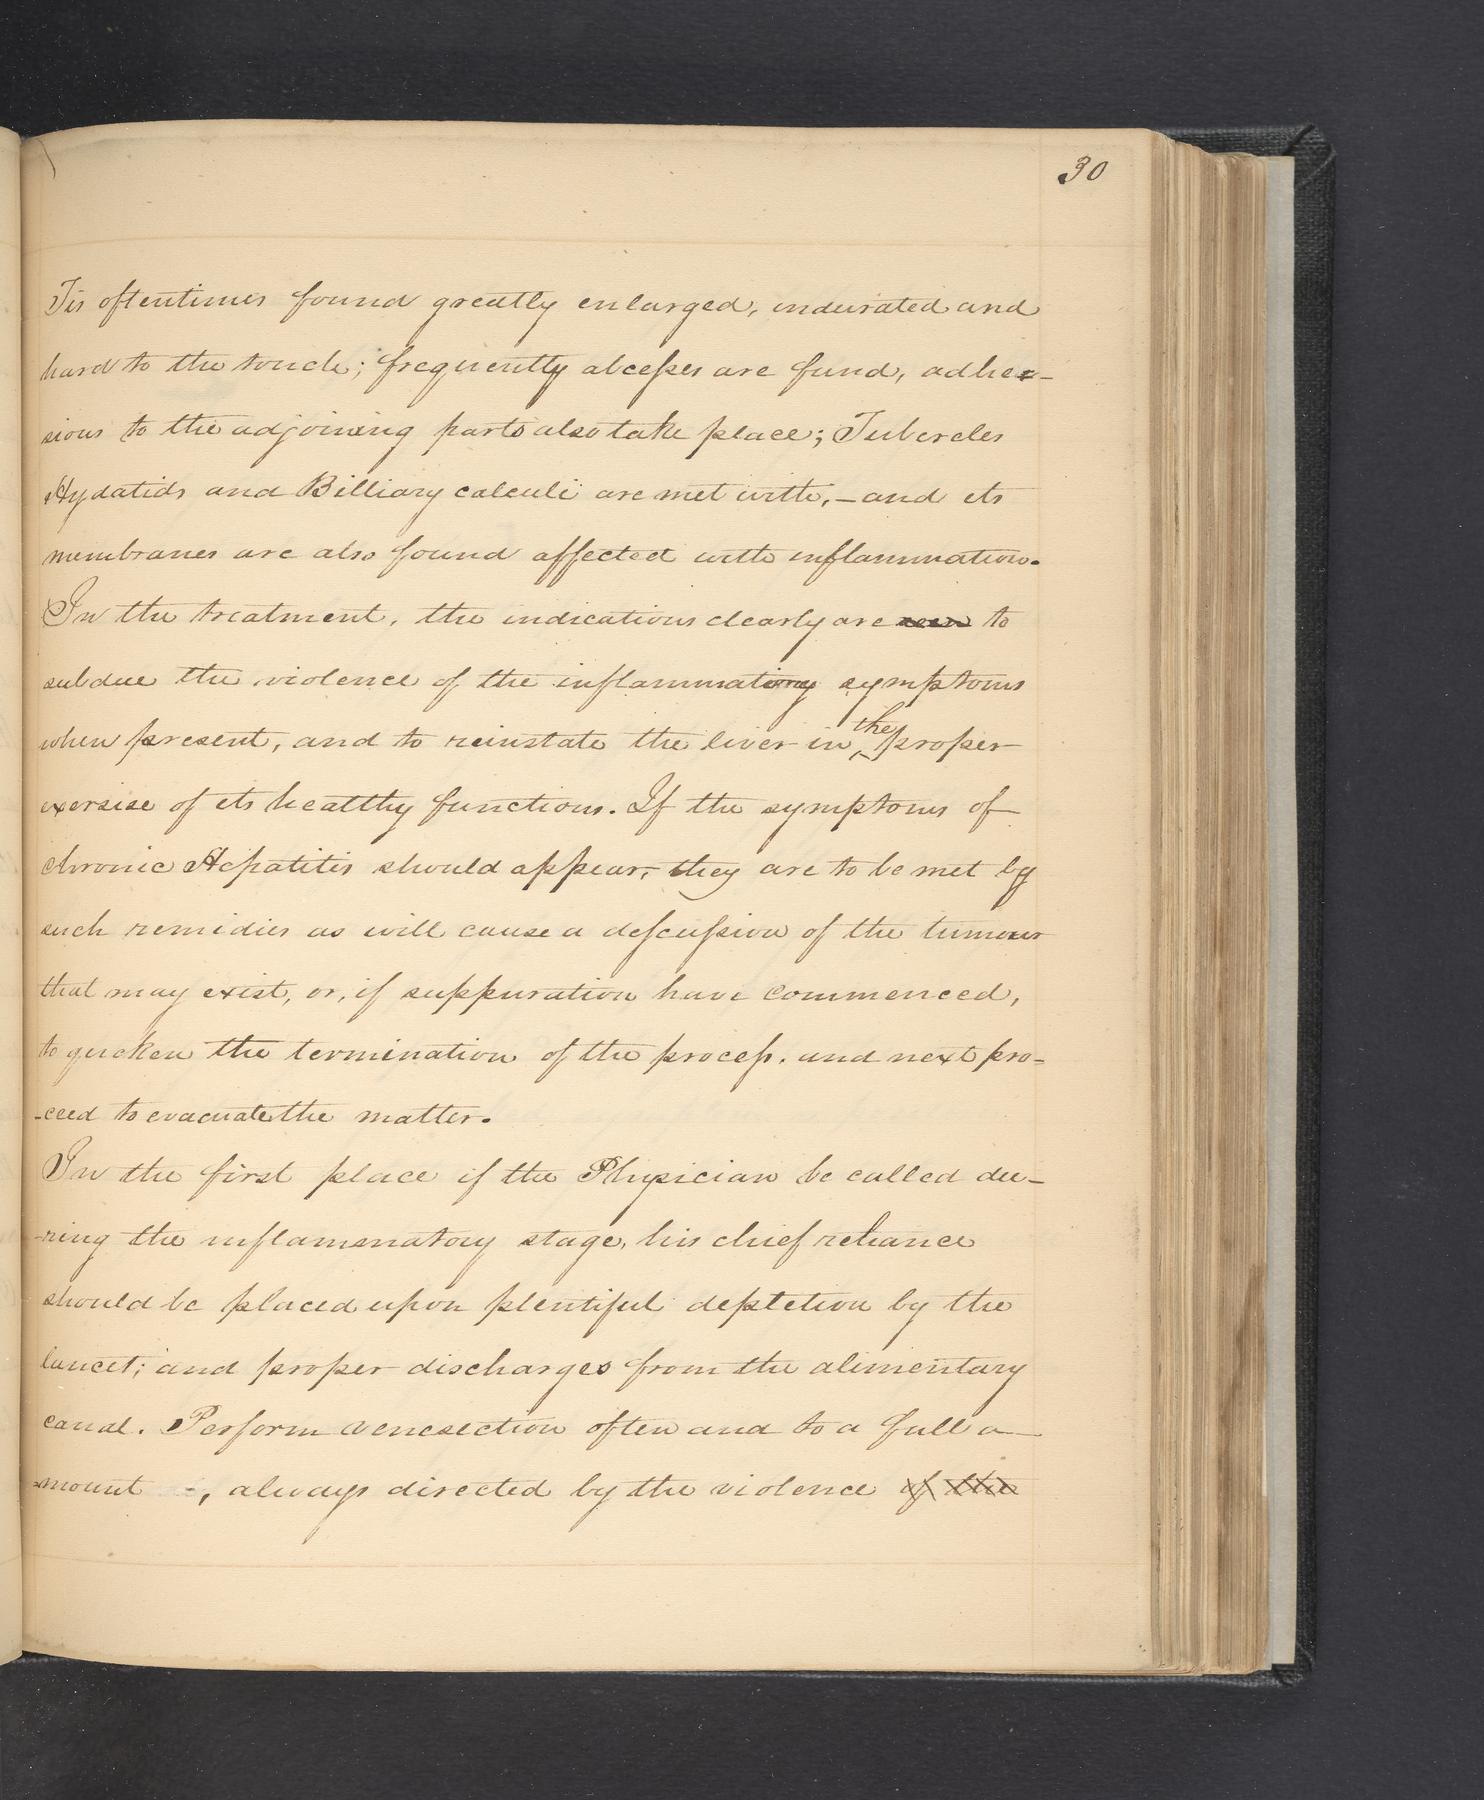 30
Tis oftentimes found greatly enlarged, indurated and
hard to the touch; frequently abcesses are fund, adhe-
sions to the adjoining parts also take place; Tubercles
Hydatids and Billiary calculi are met with,—and its
membranes are also found affected with inflammation.
In the treatment, the indications clearly are to
subdue the violence of the inflammatory symptoms
when present, and to reinstate the liver in the proper
exersise of its healthy functions. If the symptoms of
chronic Hepatitis should appear, they are to be met by
such remidies as will cause a descussion of the tumour
that may exist, or, if suppuration have commenced,
to quicken the termination of the process. and next pro-
-ceed to evacuate the matter.
In the first place if the Physician be called du-
-ring the inflammatory stage, his chief reliance
should be placed upon plentiful depletion by the
lancet; and proper discharges from the alimentary
canal. Perform venesection often and to a full a-
-mount, always directed by the violence of the